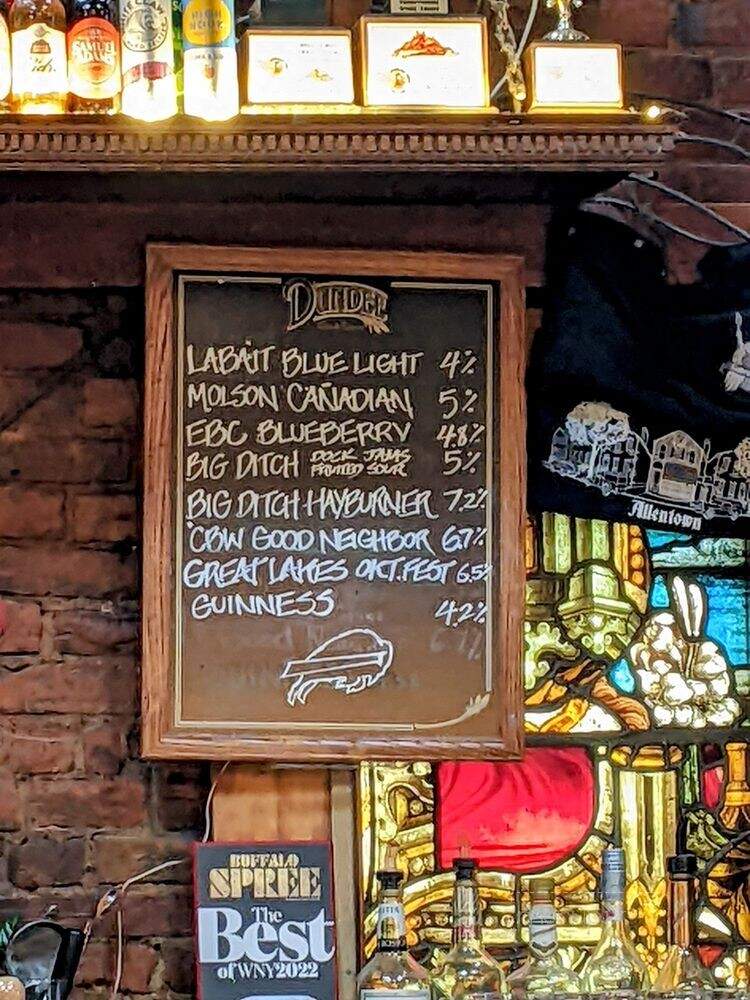 SAMUEL
ADAMS
HIGH
NOON
DUNDEE
LABATT BLUE LIGHT 4%
MOLSON CANADIAN 5%
EBC BLUEBERRY 4.8%
BIG DITCH DOCK JAMS
FRUITED SOUR 5%
BIG DITCH HAYBURNER 7.2%
CBW GOOD NEIGHBOR 6.7%
GREAT LAKES OKT.FEST 6.5%
GUINNESS 4.2%
Allentown
BUFFALO
SPREE
The
Best
of WNY 2022